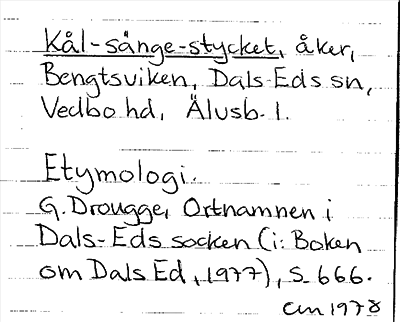 Kål-sänge-stycket, åker,
Bengtsviken, Dals-Eds sn,
Vedbo hd, Älvsb. l.
Etymologi.
G. Drougge, Ortnamnen i
Dals-Eds socken (i: Boken
om Dals Ed, 1977), s. 666.
CM 1978